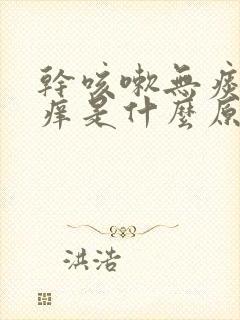 幹咳嗽無痰
痒是什麼原
洪浩